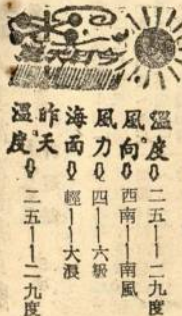 溫度⇩二五——二九度
風向⇩西南——南風
風力⇩四——六級
海面⇩輕——大浪
昨天
溫度⇩二五——二九度